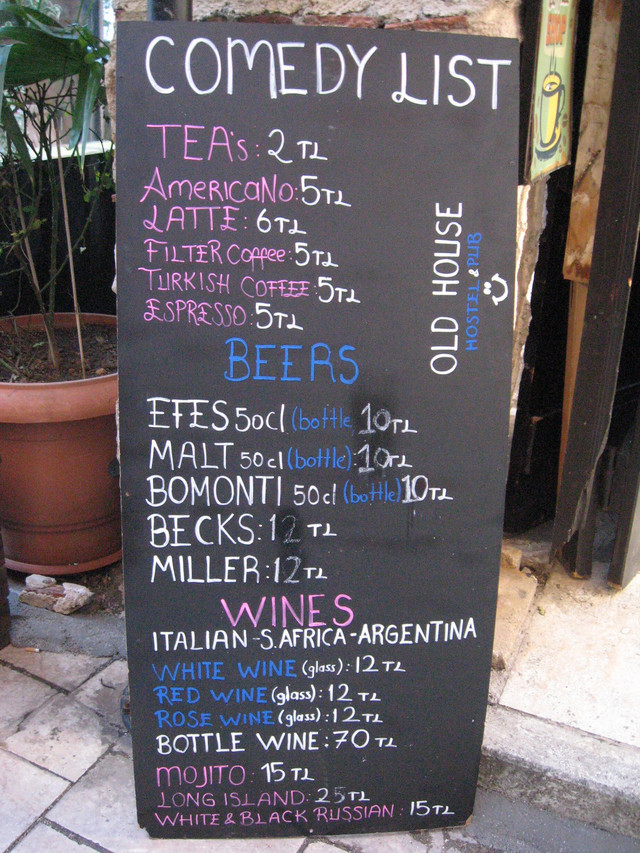 COMEDY LIST
TEA's: 2 TL
AMERICANO: 5TL
LATTE: 6TL
FILTER Coffee: 5TL
TURKISH COFFEE: 5TL
ESPRESSO: 5TL
OLD HOUSE
HOSTEL & PUB
BEERS
EFES 50cl (bottle 10TL
MALT 50cl (bottle): 10TL
BOMONTI 50cl (bottle) 10TL
BECKS: 12 TL
MILLER: 12TL
WINES
ITALIAN-S.AFRICA-ARGENTINA
WHITE WINE (glass): 12TL
RED WINE (glass): 12 TL
ROSE WINE (glass): 12TL
BOTTLE WINE: 70 TL
MOJITO: 15 TL
LONG ISLAND: 25TL
WHITE & BLACK RUSSIAN: 15TL